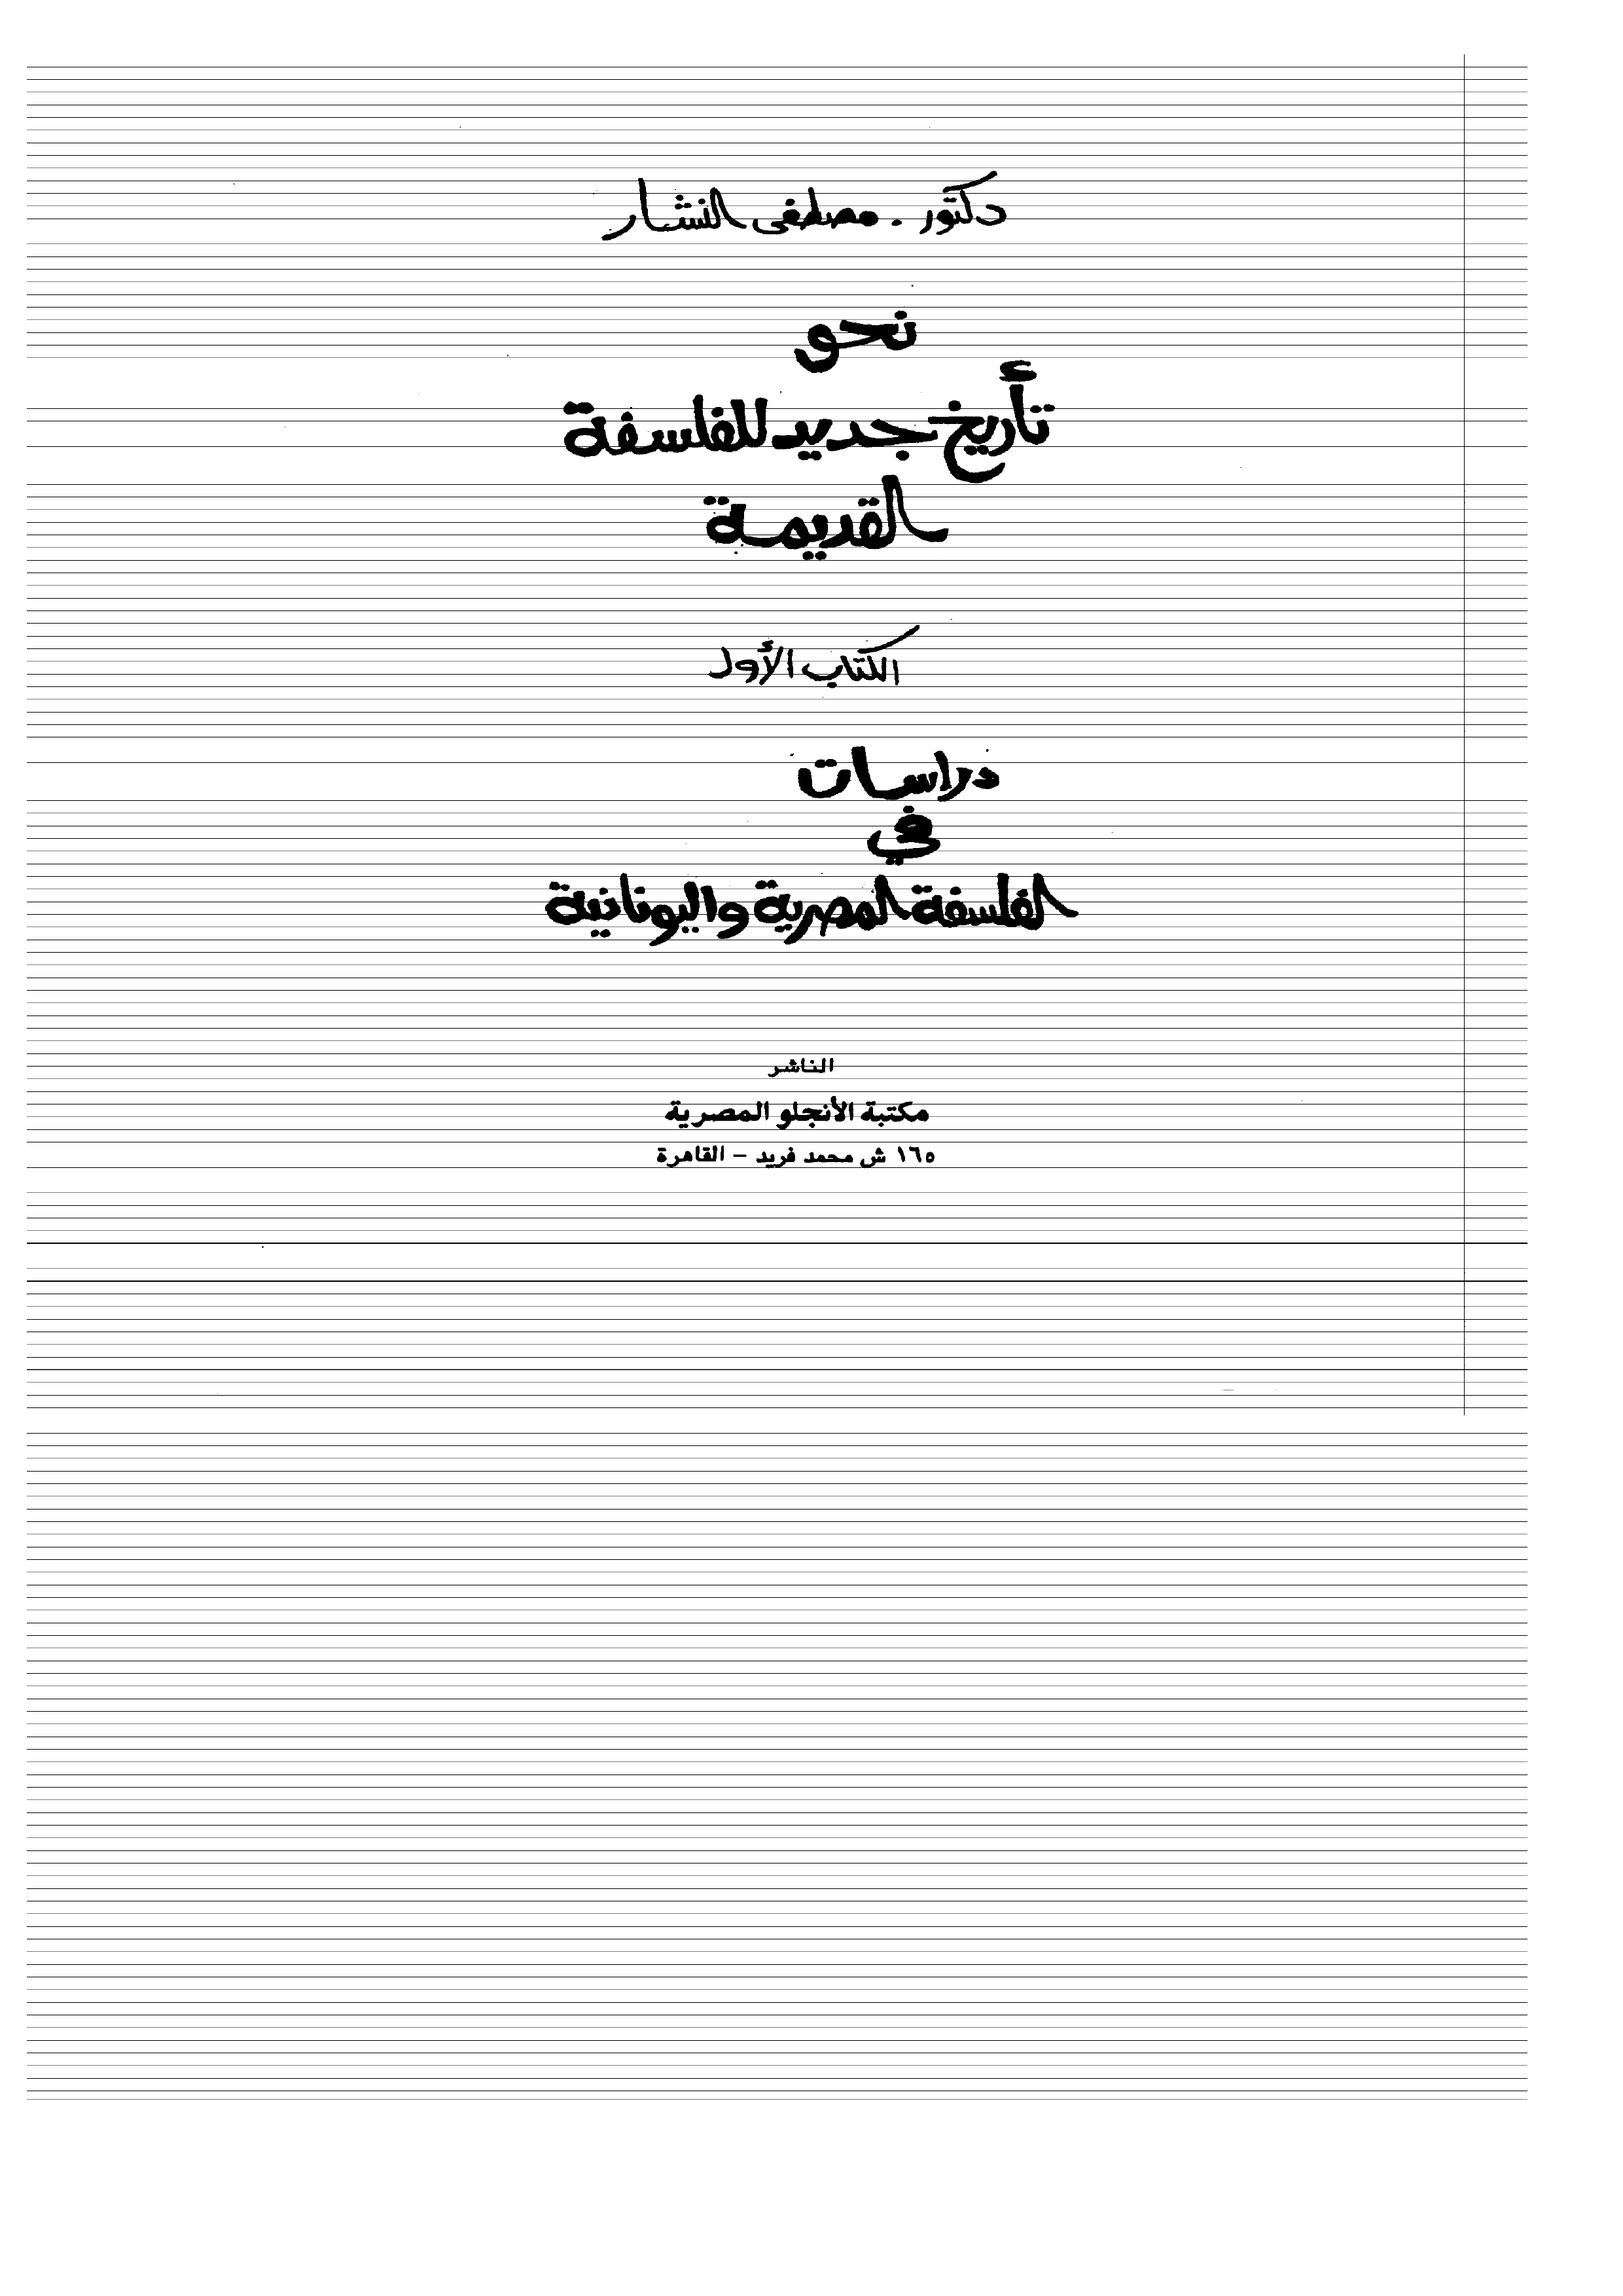 دكتور . مصطفى النشار
نحو
تأريخ جديد للفلسفة
القديمة
الكتاب الأول
دراسات
في
الفلسفة المصرية واليونانية
الناشر
مكتبة الأنجلو المصرية
١٦٥ ش محمد فريد - القاهرة